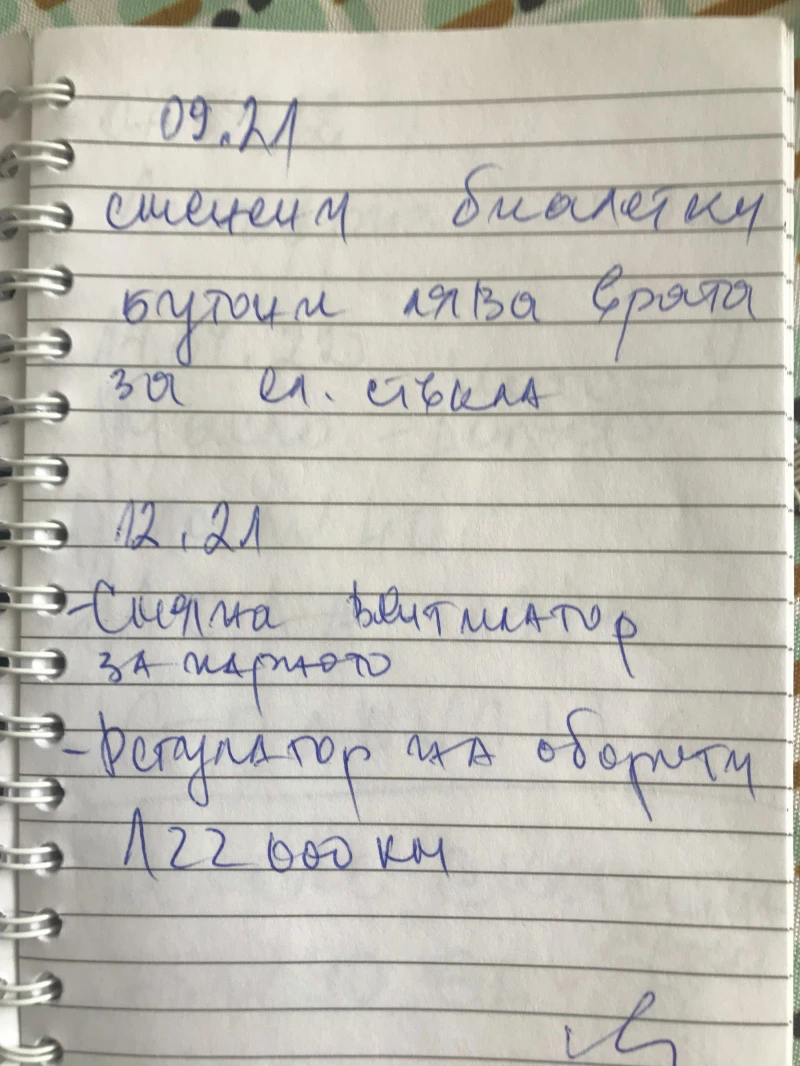 09.21
сменени биалетки
бутони лява врата
за ел. стъкла
12.21
-Смяна вентилатор
за парното
-Регулатор на оборити
122000 км